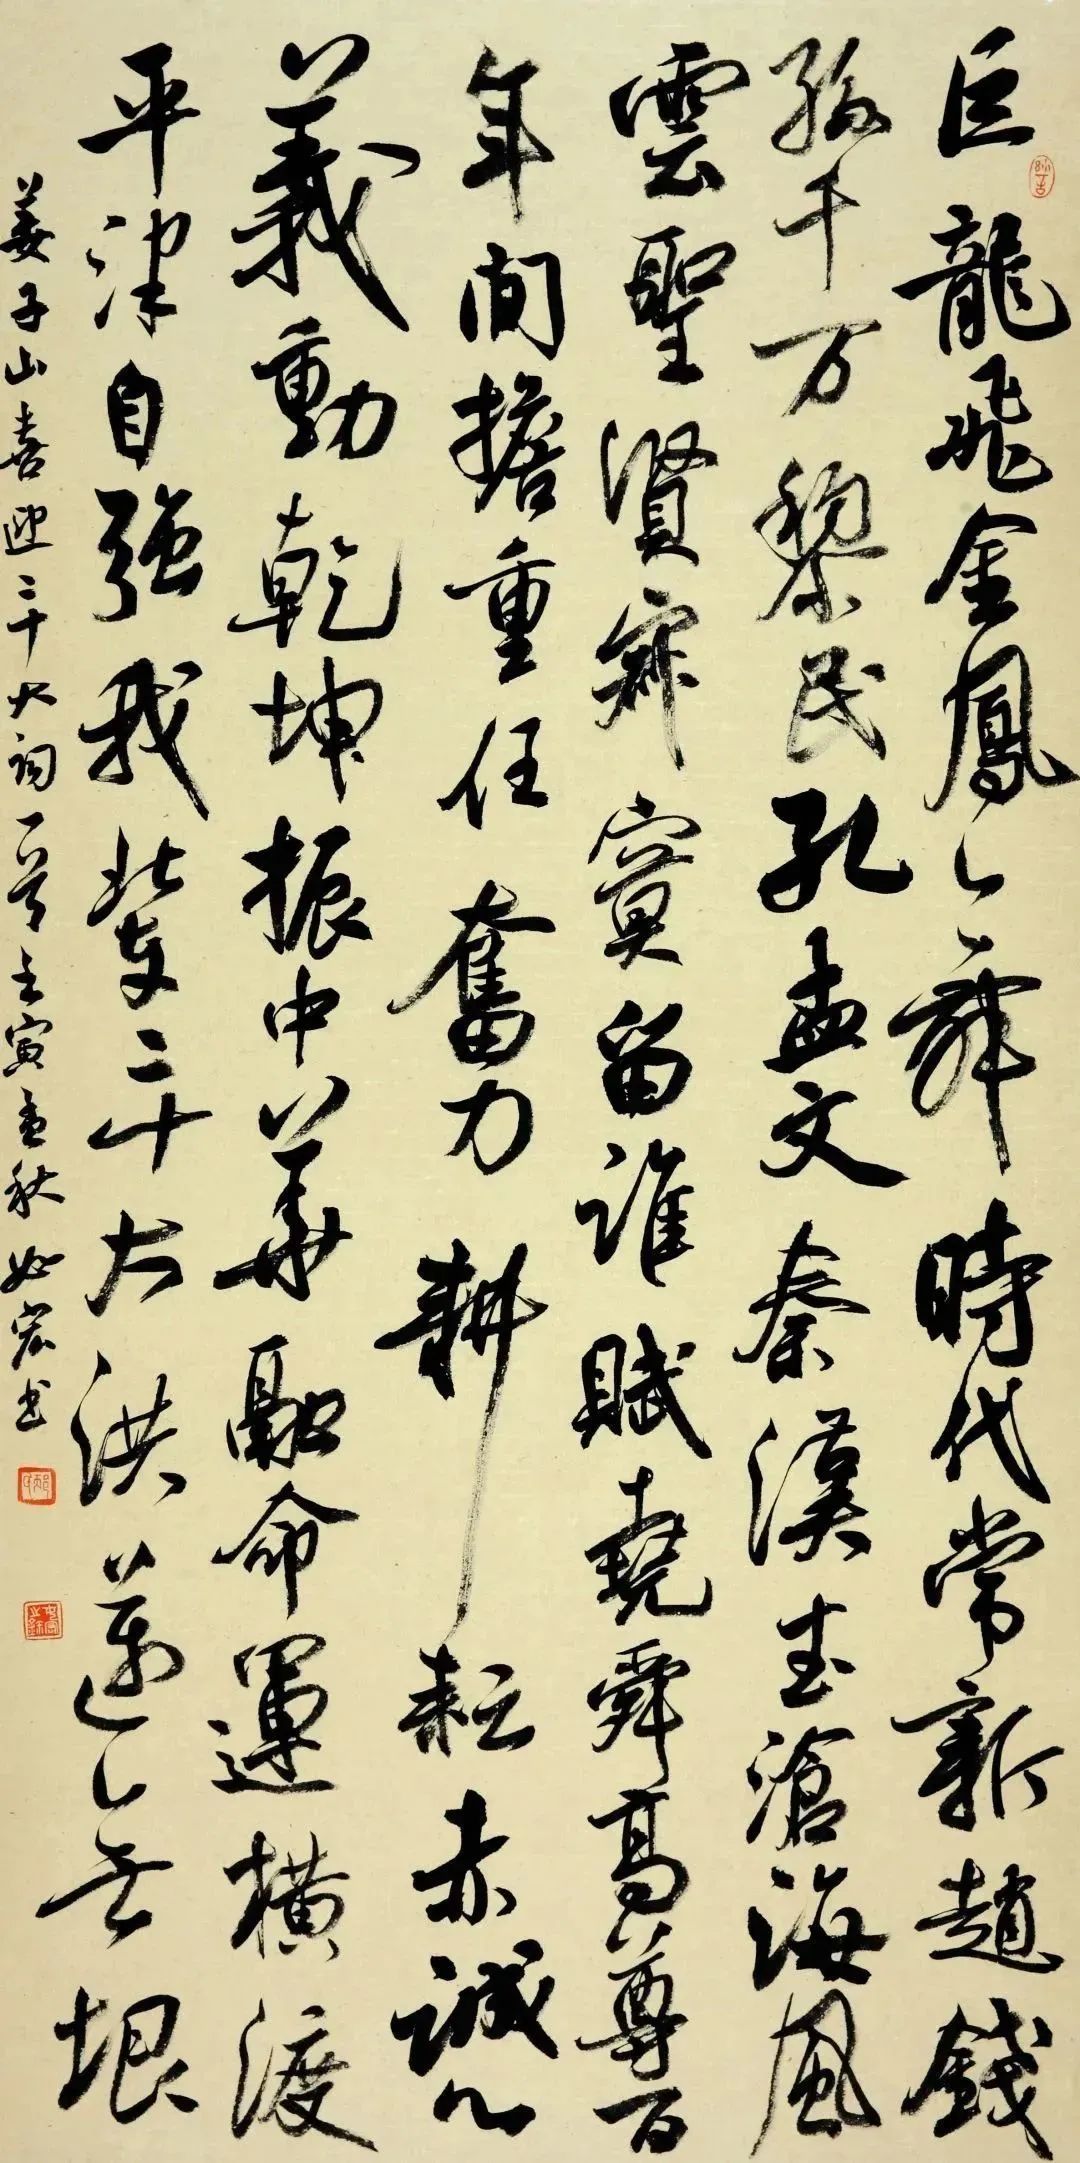 巨龍飛金鳳〻舞時代常新趙錢
孫千万黎民孔孟文秦漢滄海風
雲聖賢寂寞留誰賦堯舜高尊百
年間擔重任奮力耕耘赤誠心
義動乾坤振中華融命運橫渡
平津自強我輩二十大洪邁〻无垠
姜子山喜迎二十大詞一首壬寅孟秋如宏书